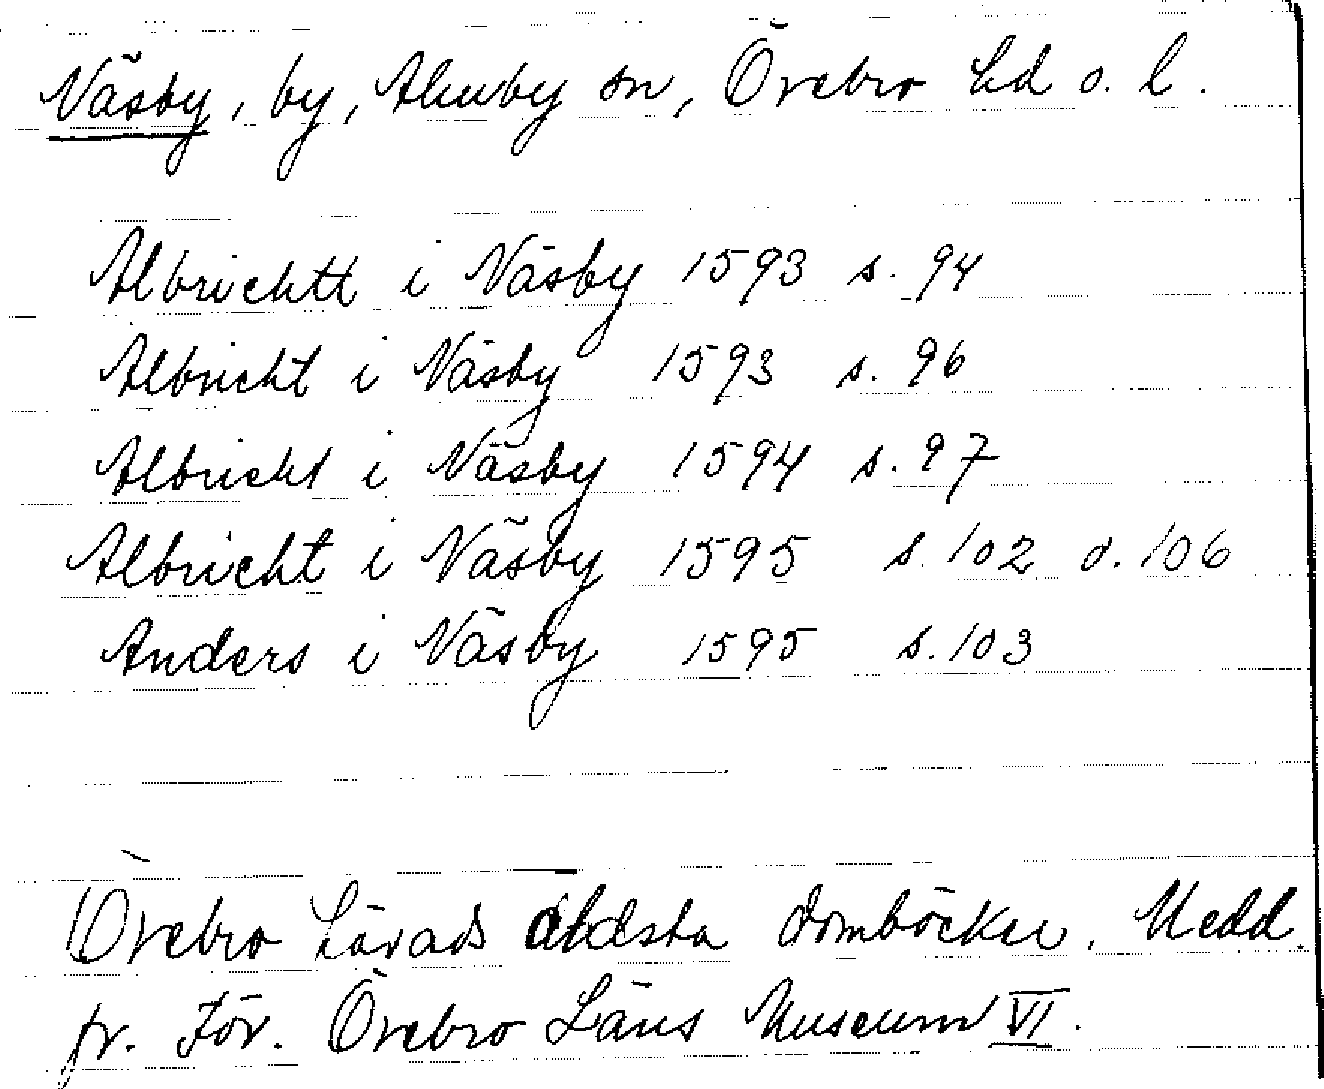 Näsby, by, Almby sn, Örebro hd o. l.
Albrichtt i Näsby 1593 s. 94
Albricht i Näsby 1593 s. 96
Albricht i Näsby 1594 s. 97
Albricht i Näsby 1595 s. 102 o. 106
Anders i Näsby 1595 s. 103
Örebro härads äldsta domböcker. Medd.
fr. För. Örebro Läns Museum VI.